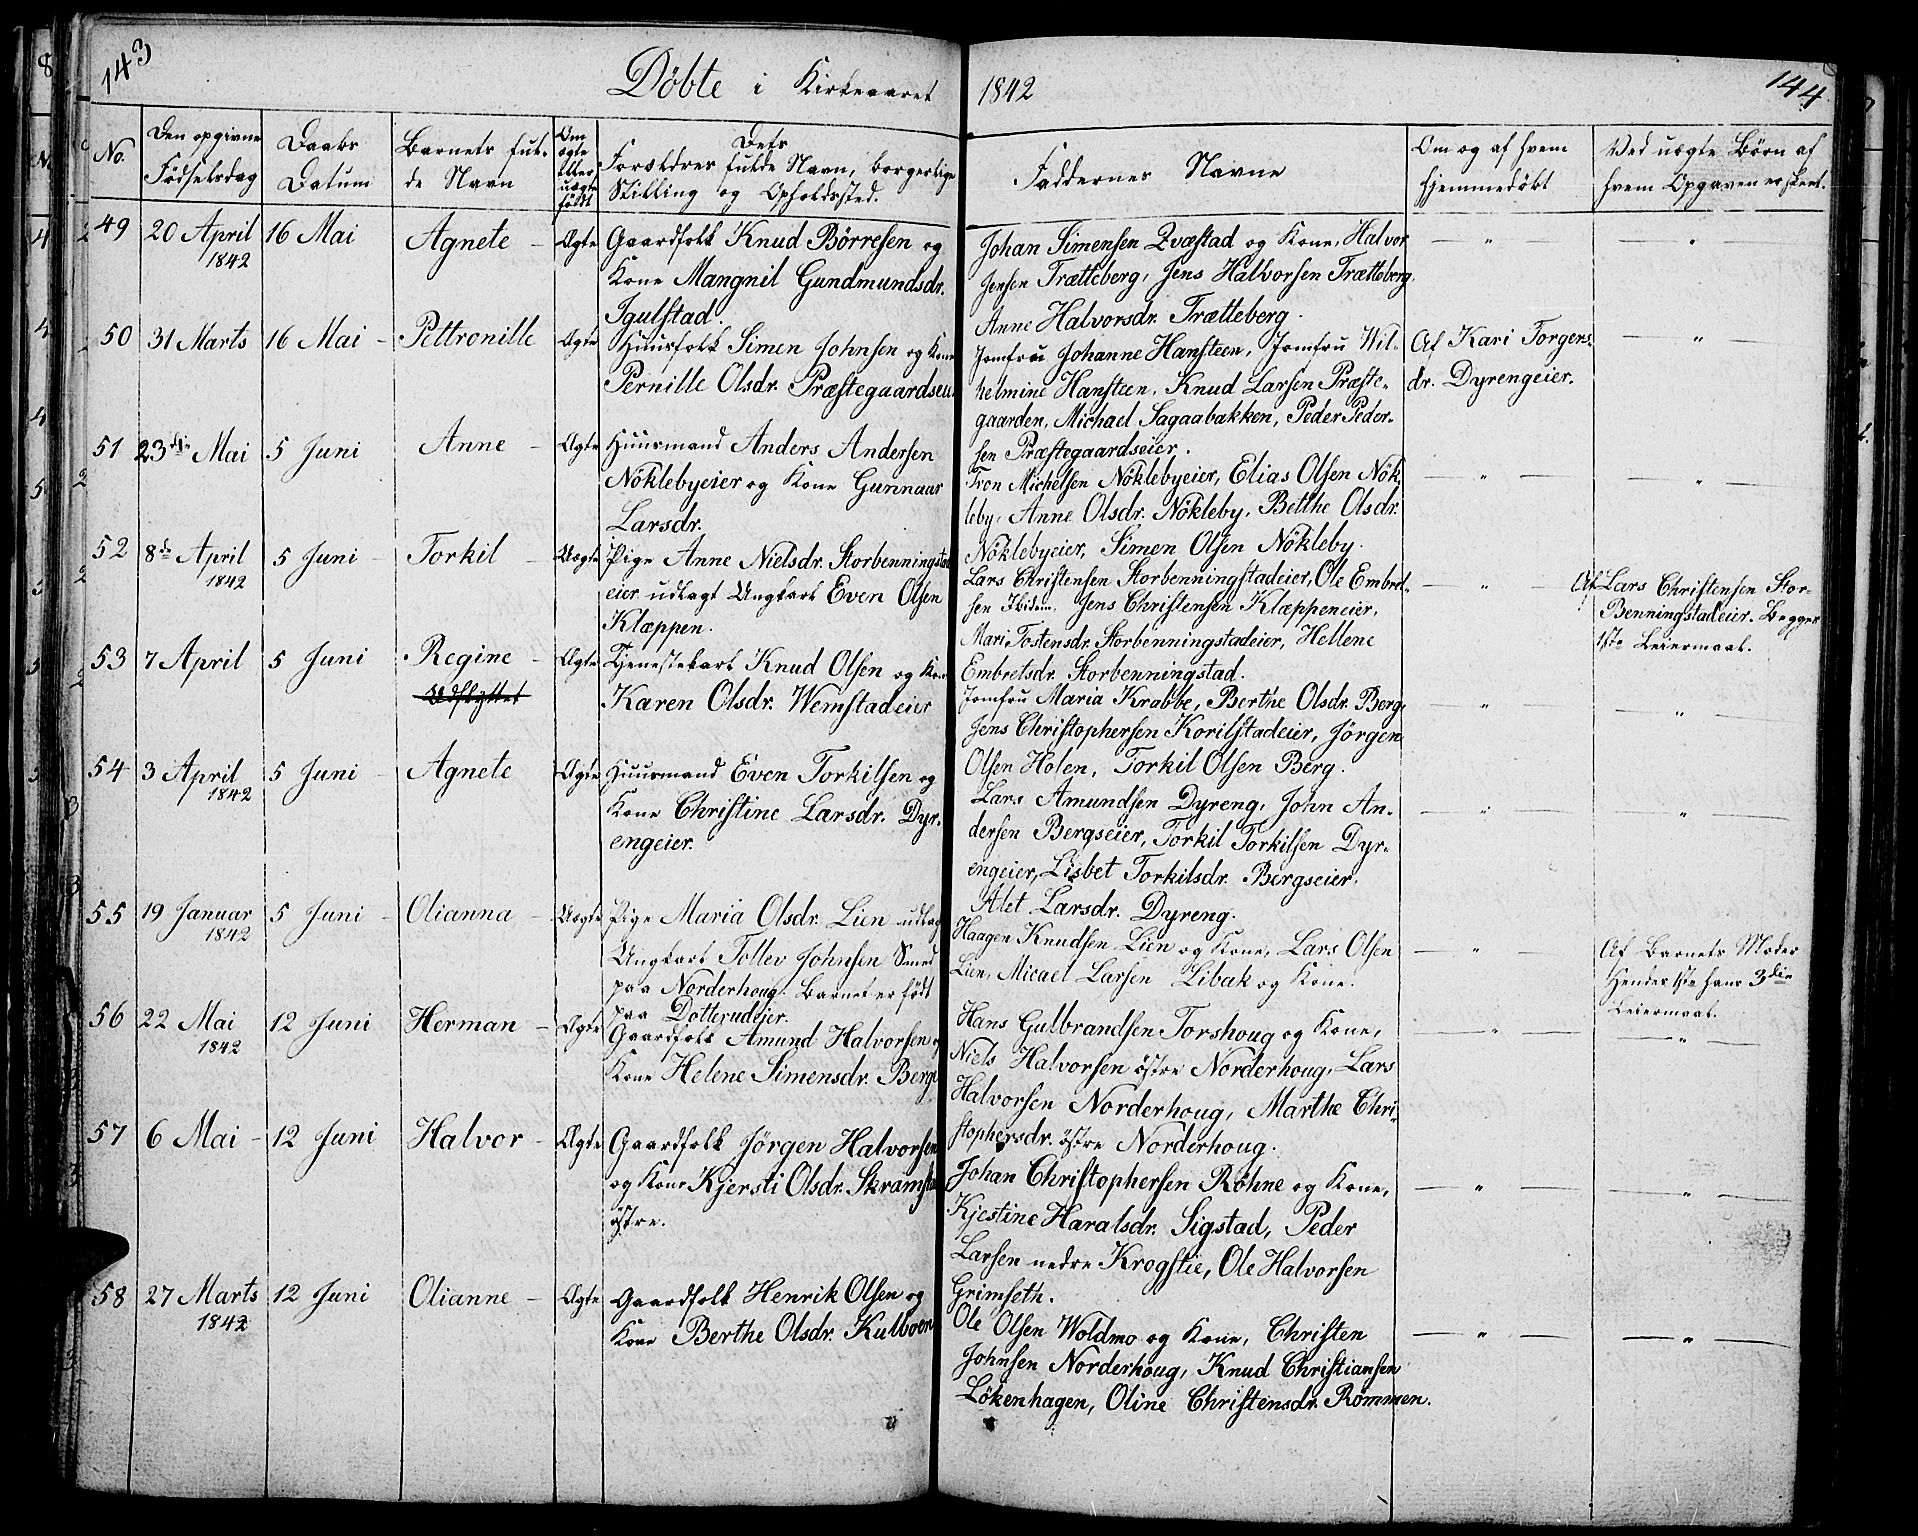 143
Döbte i Kirkeaaret 1842
144
No.
Den opgivne Födselsdag
Daabs Datum
Barnets fulde Navn
Om ægte eller uægte født
Dets Forældres fulde Navn, borgerlige Stilling og Opholdssted.
Faddernes Navne
Om og af hvem hjemmedöbt
Ved uægte Börn af hvem Opgaven er skeet.
49 20 April 1842 16 Mai Agnete – Ægte
Gaardfolk Knud Börresen og
Kone Mangnil Gundmundsdr.
Igulstad.
Johan Simensen Qvæstad og Kone, Halvor
Jensen Trætteberg, Jens Halvorsen Trætteberg
Anne Halvorsdr. Trætteberg.
— " —
— " —
50 31 Marts 16 Mai – Pettronille Ægte
Huusfolk Simen Johnsen og Kone
Pernille Olsdr. Præstegaardseie
Jomfru Johanne Hansteen, Jomfru Wil-
helmine Hansteen, Knud Larsen Præste-
gaarden, Michael Sagaabakken, Peder Peder-
sen Præstegaardseier.
Af Kari Torgers-
dr. Dyrengeier.
— " —
51 23de Mai 5 Juni Anne – Ægte
Huusmand Anders Andersen
Nöklebyeier og Kone Gunnaar
Larsdr.
Tron Michelsen Nöklebyeier, Elias Olsen Nök-
leby, Anne Olsdr. Nökleby, Bethe Olsdr.
Nöklebyeier, Simen Olsen Nökleby.
— " —
— " —
52 8de April 1842 5 Juni – Torkil – Uægte
Pige Anne Nielsdr. Storbenningstad
eier udlagt Ungkarl Even Olsen
Klæppen.
Lars Christensen Storbenningstadeier, Ole Embret-
sen Ibidem. Jens Christensen Klæppeneier,
Mari Tostensdr. Storbenningstadeier, Hellene
Embretsdr. Storbenningstad.
— " —
Af Lars Christensen Stor-
Benningstadeier. Begges
1ste Leiermaal.
53 7 April 5 Juni Regine – Ægte
Udflyttet
Tjenestekarl Knud Olsen og Kone
Karen Olsdr. Wemstadeier
Jomfru Maria Krabbe, Berthe Olsdr. Berg,
Jens Christophersen Korilstadeier, Jörgen
Olsen Holen, Torkil Olsen Berg.
— " —
— " —
54 3 April 1842 5 Juni – Agnete Ægte
Huusmand Even Torkilsen og
Kone Christine Larsdr. Dyr-
engeier.
Lars Amundsen Dyreng, John An-
dersen Bergseier, Torkil Torkilsen Dyr-
engeier, Lisbet Torkilsdr. Bergseier.
Alet Larsdr. Dyreng.
— " —
— " —
55 19 Januar 1842 5 Juni – Olianna – Uægte
Pige Maria Olsdr. Lien udlagt
Ungkarl Tollev Johnsen Smed
paa Norderhoug. Barnet er födt
paa Dotterudeier.
Haagen Knudsen Lien og Kone, Lars Olsen
Lien, Micael Larsen Libak og Kone.
— " —
Af Barnets Moder
Hendes 1ste hans 3die
Leiermaal.
56 22 Mai 1842 12 Juni Herman – Ægte
Gaardfolk Amund Halvorsen og
Kone Helene Simensdr. Berge
Hans Gulbrandsen Torshoug og Kone,
Niels Halvorsen östre Norderhoug, Lars
Halvorsen Norderhoug, Marthe Chri-
stophersdr. östre Norderhoug.
— " —
— " —
57 6 Mai – 12 Juni Halvor – Ægte
Gaardfolk Jörgen Halvorsen
og Kone Kjersti Olsdr. Skramstad
östre.
Johan Christophersen Röhne og Kone,
Kjestine Haralsdr. Sigstad, Peder
Larsen nedre Krogstie, Ole Halvorsen
Grimseth.
— " —
— " —
58 27 Marts 1842 12 Juni Olianne – Ægte
Gaardfolk Henrik Olsen og
Kone Berthe Olsdr. Kulvoen
Ole Olsen Woldmo og Kone, Christen
Johnsen Norderhoug, Knud Christiansen
Lökenhagen, Oline Christensdr. Römmen.
— " —
— " —